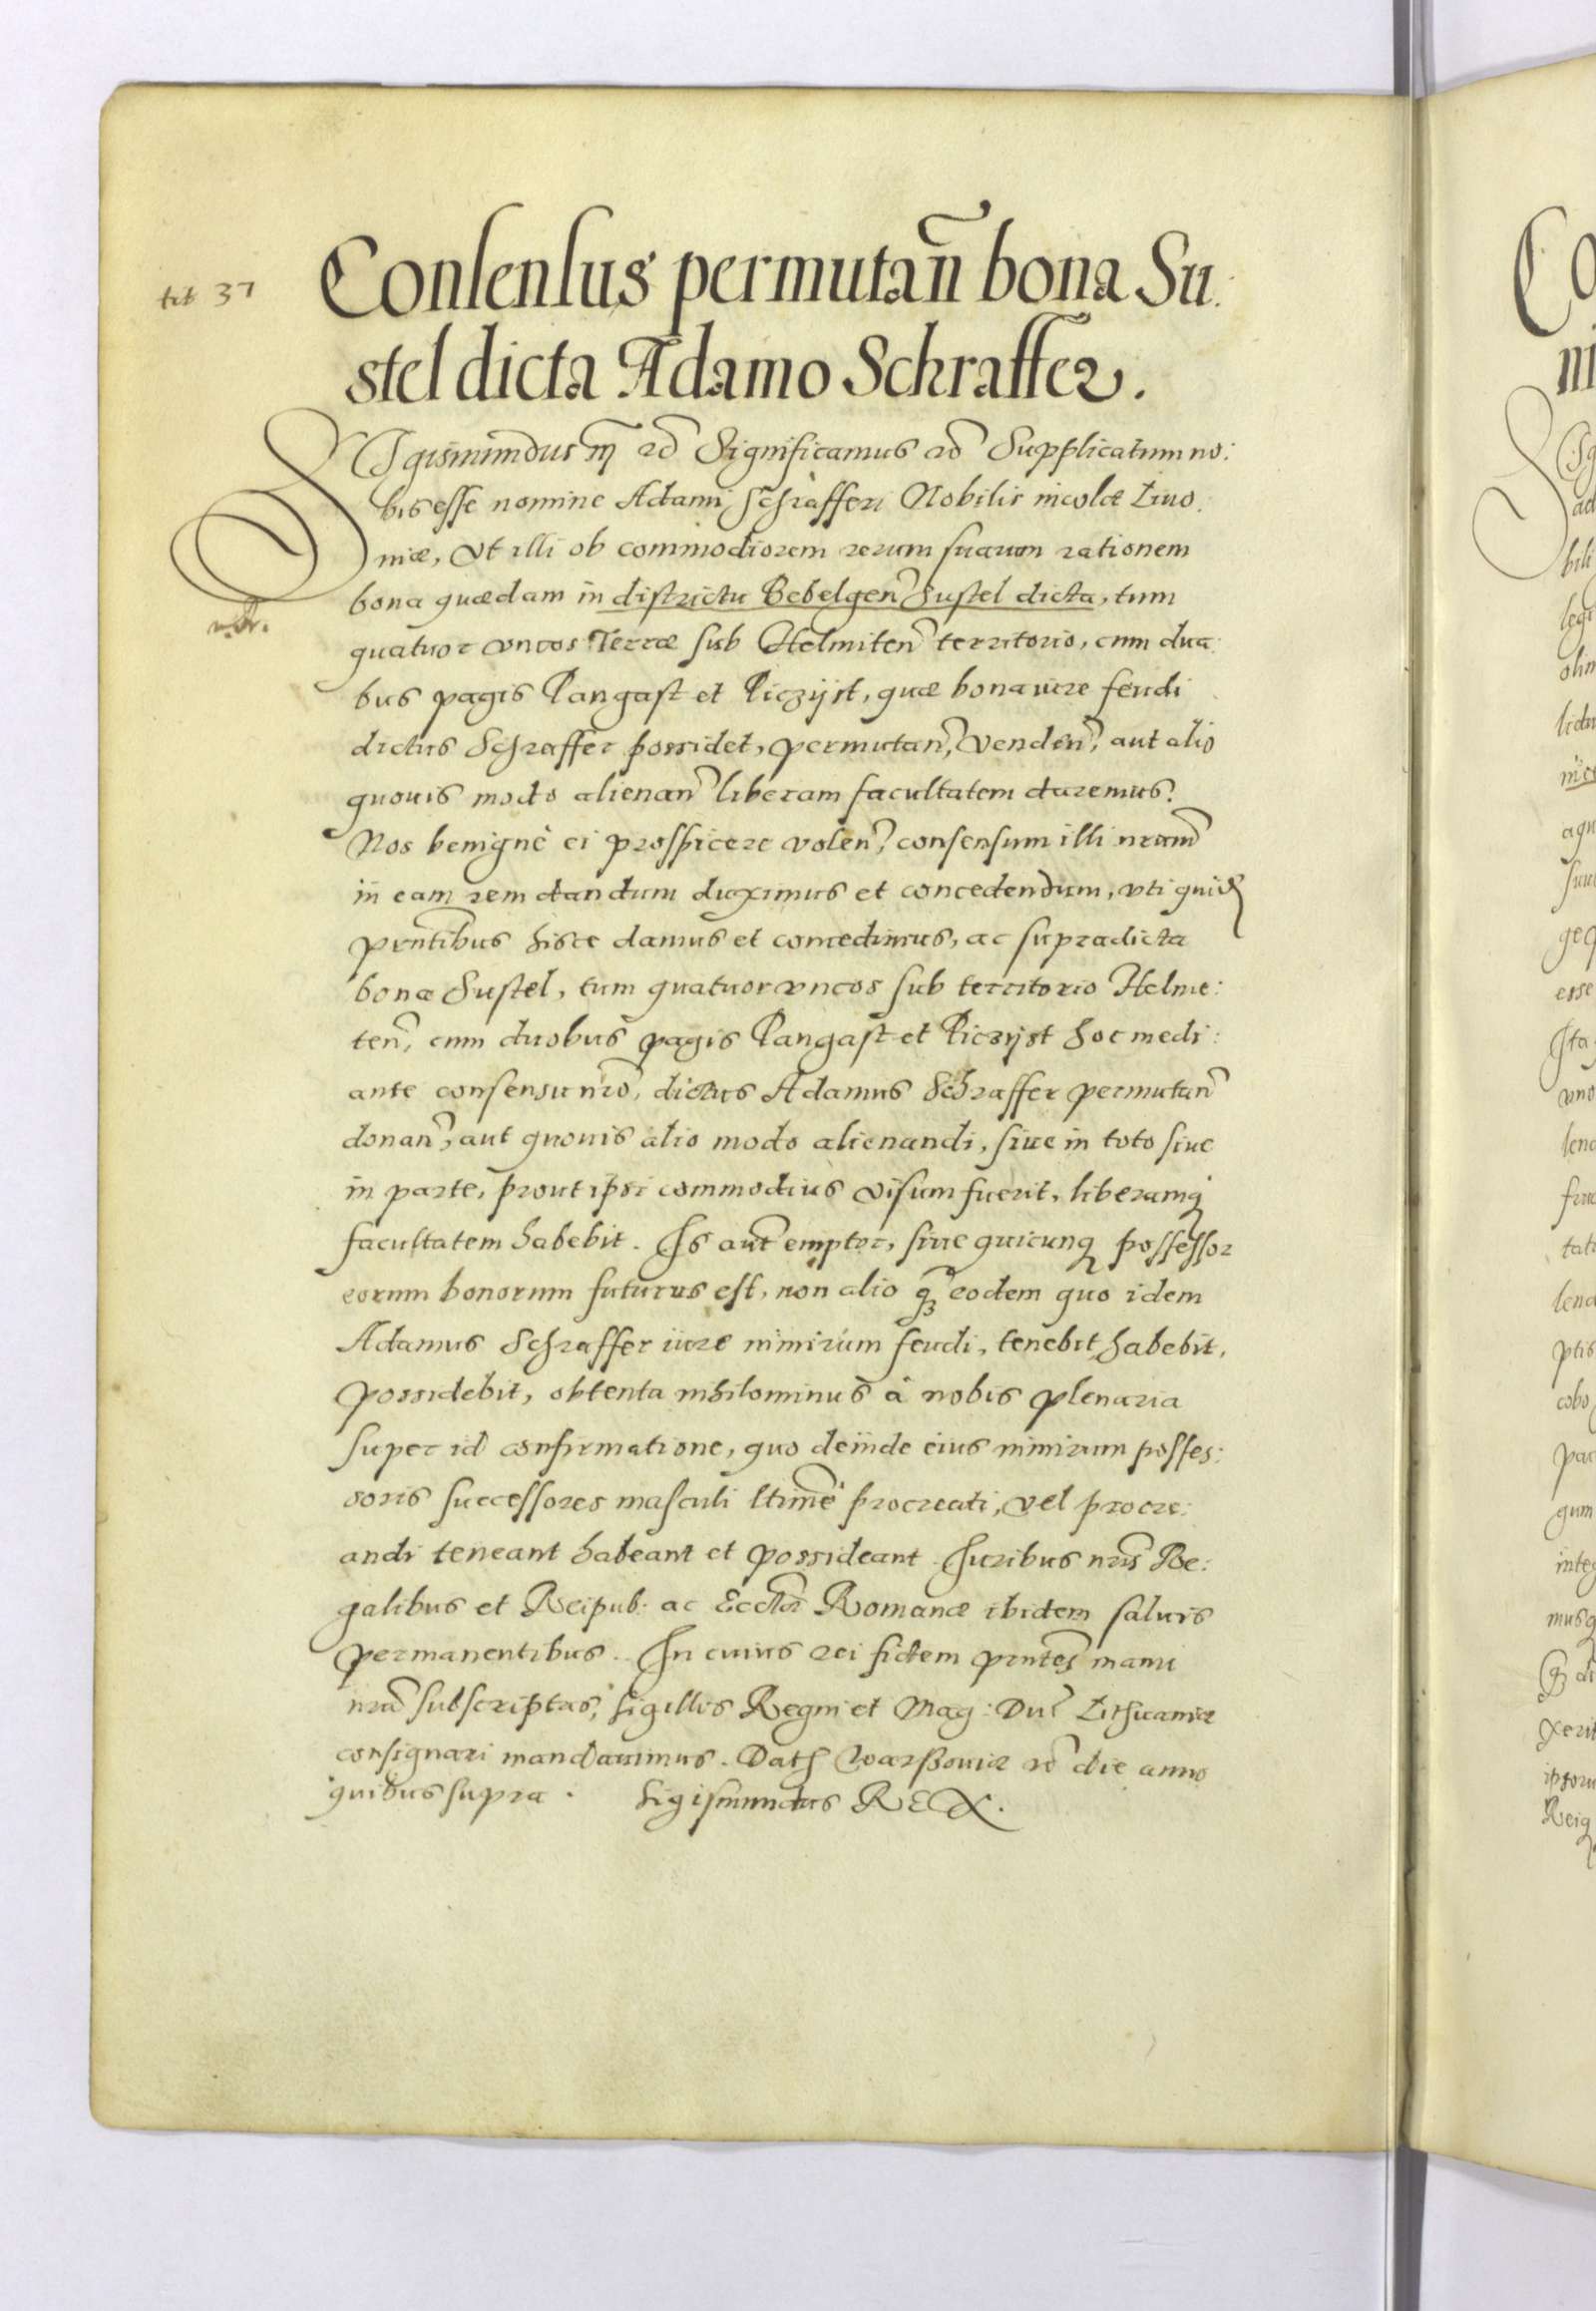 tit 37
Consensus permutan̄ bona Su:
stel dicta Adamo Schraffer.
SIgismundus III etc̄ Significamus etc̄ Supplicatum no:
bis esse nomine Adami Schrafferi Nobilis incolæ Liuo.
niæ, Vt illi ob commodiorem rerum suarum rationem
bona quædam in districtu Bebelgen̄ Sustel dicta, tum
quatuor vncos Terræ sub Helmiten̄ territorio, cum dua:
bus pagis Pangast et Piczijst, quæ bona iure feudi
dictus Schraffer possidet, permutan̄, venden̄, aut alio
quouis modo alienan̄ liberam facultatem daremus.
Nos benignè ei prospicere volen̄, consensum illi nram̄
in eam rem dandum duximus et concedendum, vti quid
pn̄tibus hisce damus et concedimus, ac supradicta
bona Sustel, tum quatuor vncos sub territorio Helme:
ten̄, cum duobus pagis Pangast et Piczijst hoc medi:
ante consensu nro̅, dictus Adamus Schraffer permutan̄
donan̄, aut quouis alio modo alienandi, siue in toto siue
in parte, prout ipsi commodius visum fuerit, liberamq́
facultatem habebit. Is aut̄ emptor, siue quicunq possessor
eorum bonorum futurus est, non alio q̃ȝ eodem quo idem
Adamus Schraffer iure nimirùm feudi, tenebit, habebit,
possidebit, obtenta nihilominus à nobis plenaria
super id confirmatione, quo deinde eius nimirum posses:
soris successores masculi ltimē procreati, vel procre:
andi teneant habeant et possideant. Iuribus nris̄ Re:
galibus et Reipub: ac Romanæ ibidem saluis
permanentibus. In cuius rei fidem pn̄tes manu
nrā subscriptas, sigillis Regni et Mag: Duc̄ Lithuaniæ
consignari mandauimus. Dat Warssouiæ etc̄ die anno
quibus supra. Sigismundus REX.